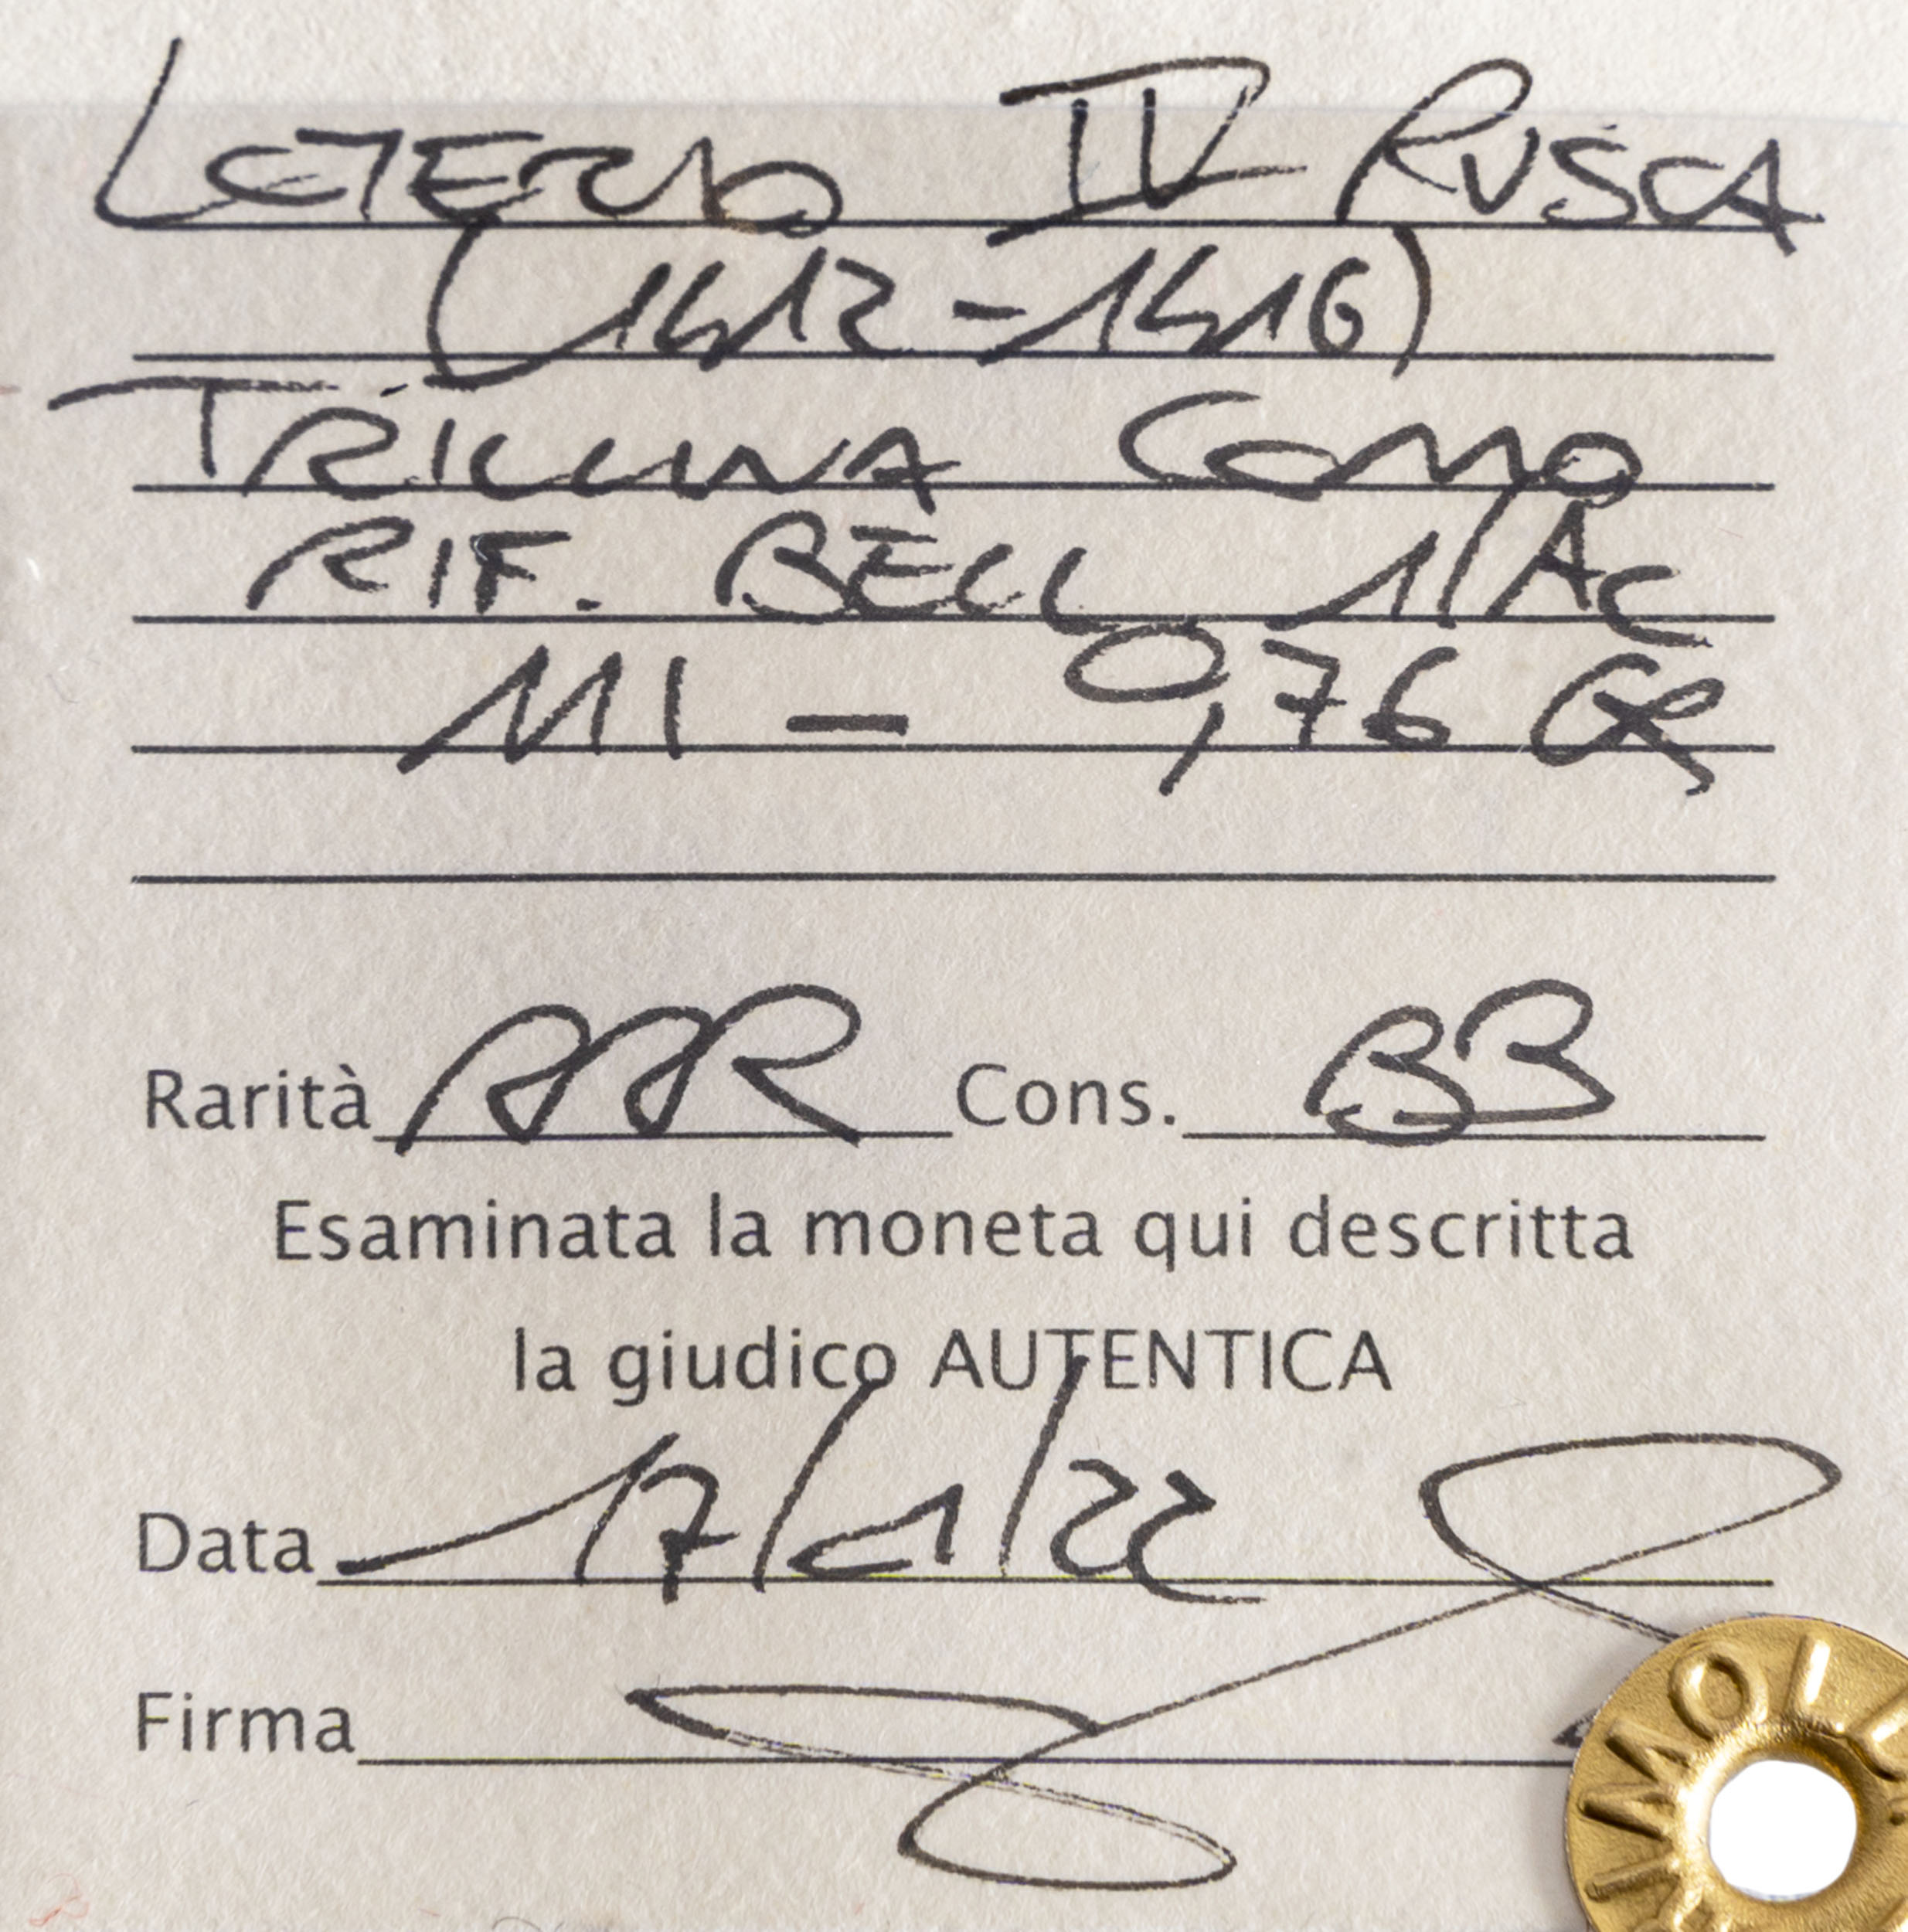 LOTERIO IV RUSCA
(1412-1416)
TRILLINA COMO
RIF. BELL 1/AC
MI - 0,76 GR
Rarità RRR Cons. BB
Esaminata la moneta qui descritta
la giudico AUTENTICA
Data 17/1/22
Firma